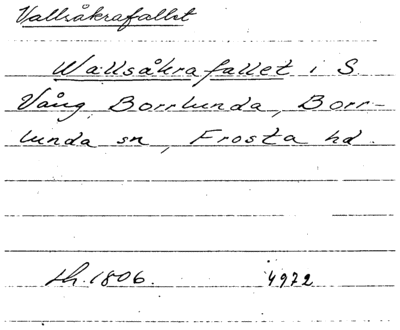 Vallsåkrafallet
Wallsåkrafallet i S.
Vång, Borrlunda, Borr-
lunda sn, Frosta hd.
Lh. 1806. 4972